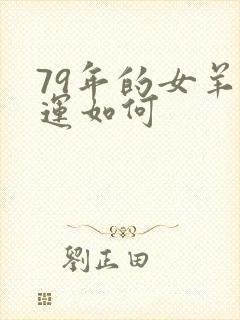 79年的女羊
運如何
劉正田